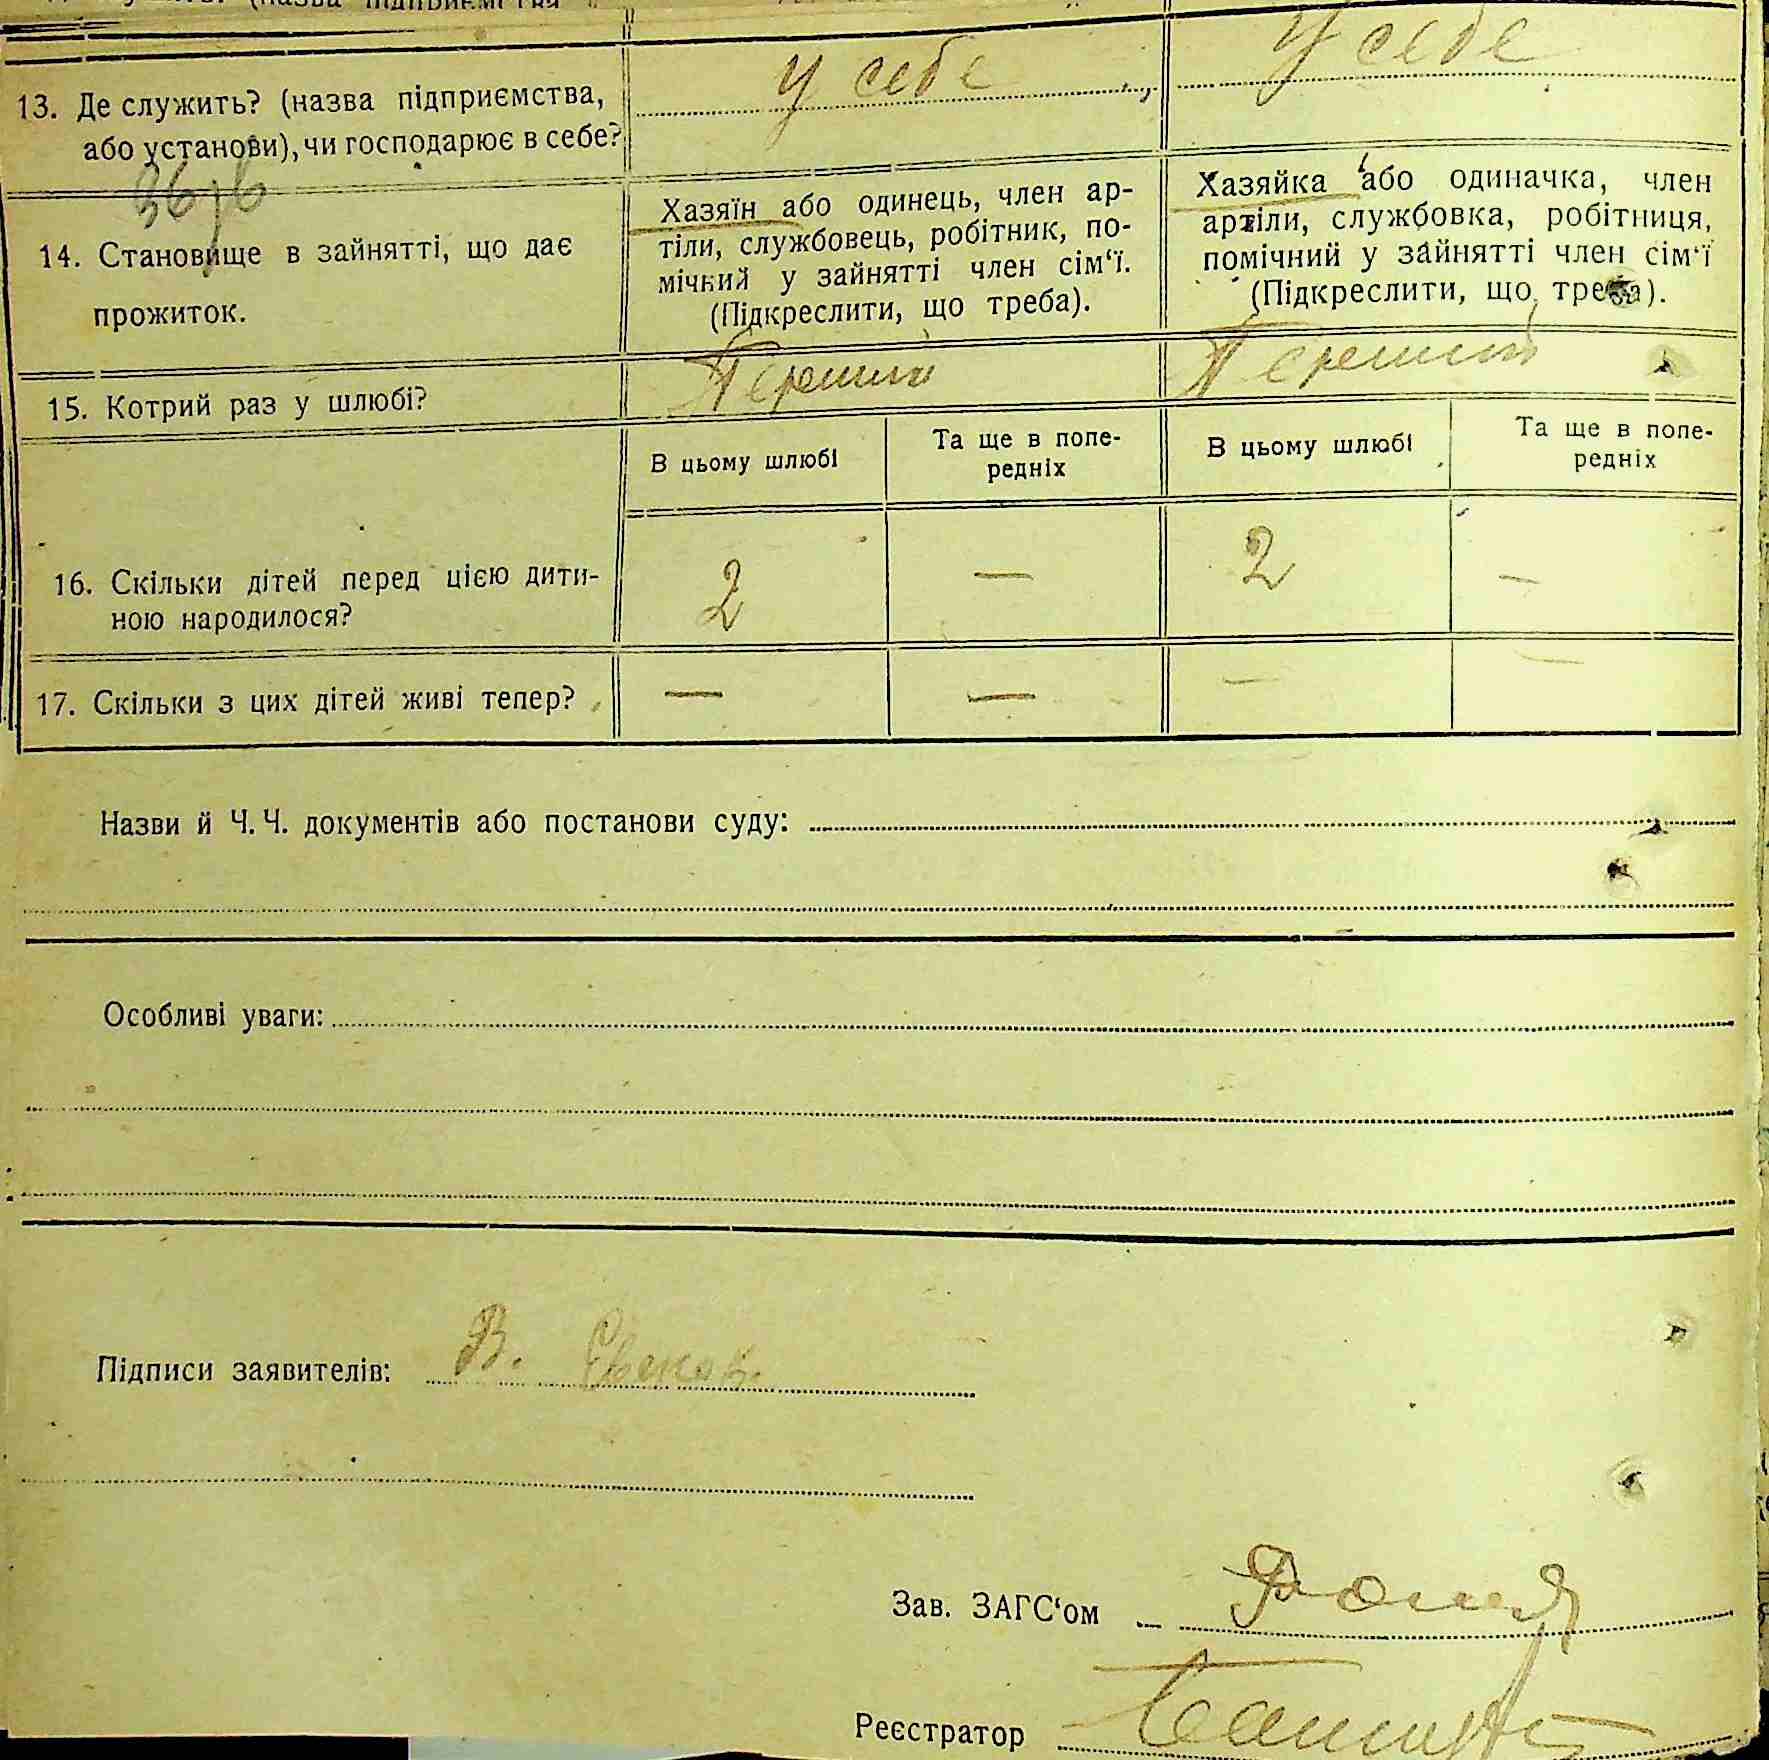 13. Де служить? (назва підприємства,
або установи), чи господарює в себе?
у себе
у себе
14. Становище в зайнятті, що дає
прожиток.
Хазяїн або одинець, член ар-
тіли, службовець, робітник, по-
мічний у зайнятті член сім‘ї.
(Підкреслити, що треба).
Хазяйка або одиначка, член
артіли, службовка, робітниця,
помічний у зайнятті член сім‘ї
(Підкреслити, що треба).
15. Котрий раз у шлюбі?
Перший
Перший
В цьому шлюбі
Та ще в попе-
редніх
В цьому шлюбі
Та ще в попе-
редніх
16. Скільки дітей перед цією дити-
ною народилося?
2 — 2 —
17. Скільки з цих дітей живі тепер?
— — — —
Назви й Ч. Ч. документів або постанови суду:
Особливі уваги:
Підписи заявителів: В.
Зав. ЗАГС‘ом
Реєстратор